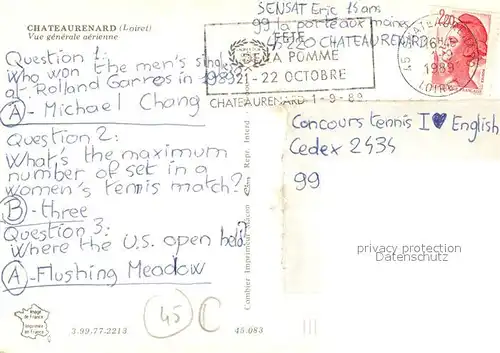 CHATEAURENARD (Loiret)
Vue générale aérienne
SENSAT Eric 15 ans
99 la porteaux maine
45220 CHATEAURENARD
FÊTE
DE LA POMME
21-22 OCTOBRE
CHATEAURENARD
1989
LOIRET
2,20
Question 1:
Who won the men's singles
at Rolland Garros in 1989?
A - Michael Chang
CHATEAURENARD 1-9-89
Question 2:
What's the maximum
number of set in a
women's tennis match?
B - three
Question 3:
Where the U.S. open held?
A - Flushing Meadow
Concours tennis I ♥ English
Cedex 2434
99
privacy protection
ansichtskartenhandel.com
Combier Imprimeur Macon Cim Repr. Interd.
Image de France
Imprimée en France
3.99.77-2213
45
C
45.083